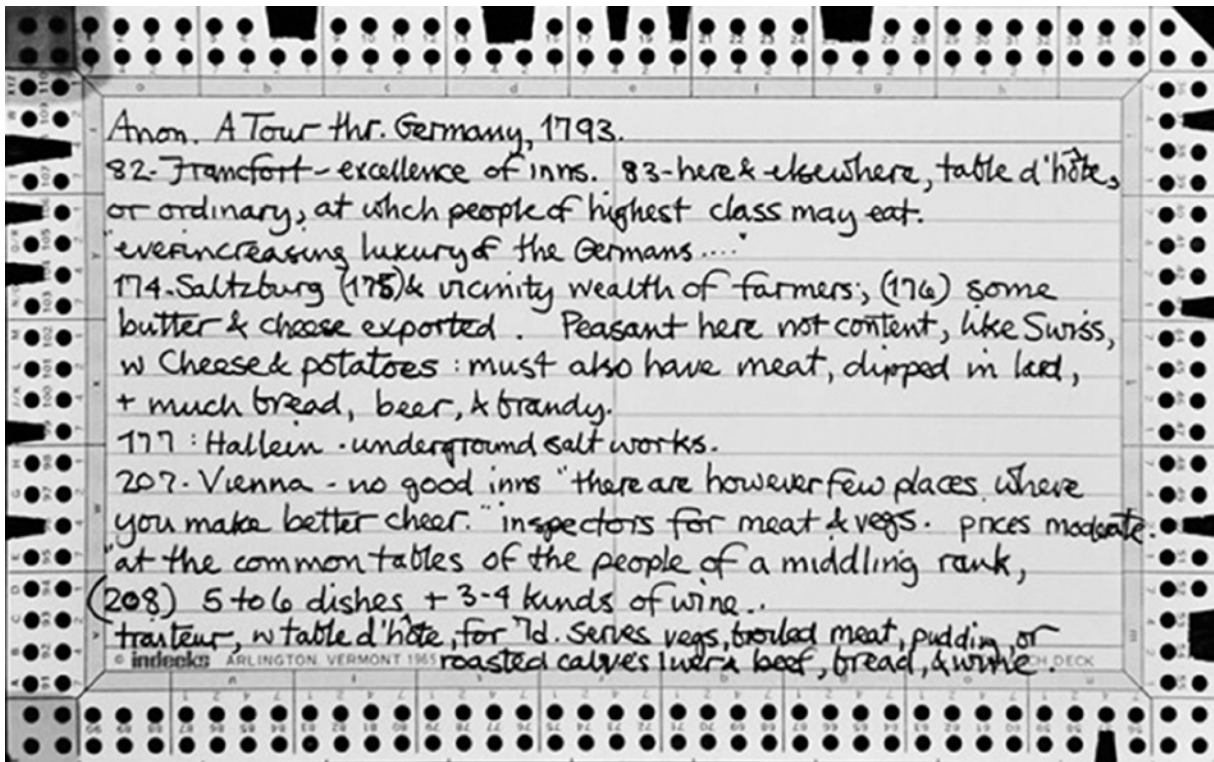 Anon. A Tour thr. Germany, 1793.
82- Francfort - excellence of inns. 83- here & elsewhere, table d'hôte,
or ordinary, at which people of highest class may eat.
"everincreasing luxury of the Germans...."
174-Saltzburg (175) & vicinity wealth of farmers; (176) some
butter & cheese exported. Peasant here not content, like Swiss,
w Cheese & potatoes : must also have meat, dipped in lard,
+ much bread, beer, & brandy.
177 : Hallein - underground salt works.
207- Vienna - no good inns "there are however few places where
you make better cheer." inspectors for meat & vegs. prices moderate.
"at the common tables of the people of a middling rank,
(208) 5 to 6 dishes + 3-4 kinds of wine..
traiteur, w table d'hôte, for 7d. serves vegs, broiled meat, pudding, or
© indecks ARLINGTON, VERMONT 1965 roasted calves liver & beef, bread, & wine. DECK